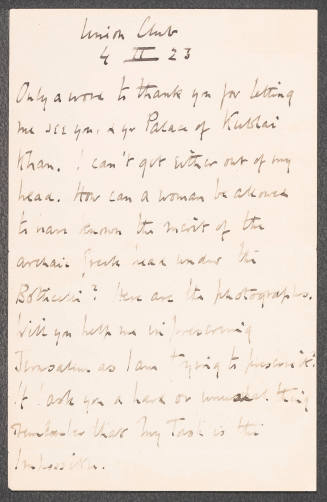 Union Club
4 II 23
Only a word to thank you for letting
me see you, & yr Palace of Kublai
Khan. I can't get either out of my
head. How can a woman be allowed
to have known the merit of the
archaic Greek head under the
Botticelli? Here are the photographs.
Will you help me in preserving
Jerusalem as I am trying to preserve it?
If I ask you a hard or unusual thing
remember that my Task is the
Impossible.